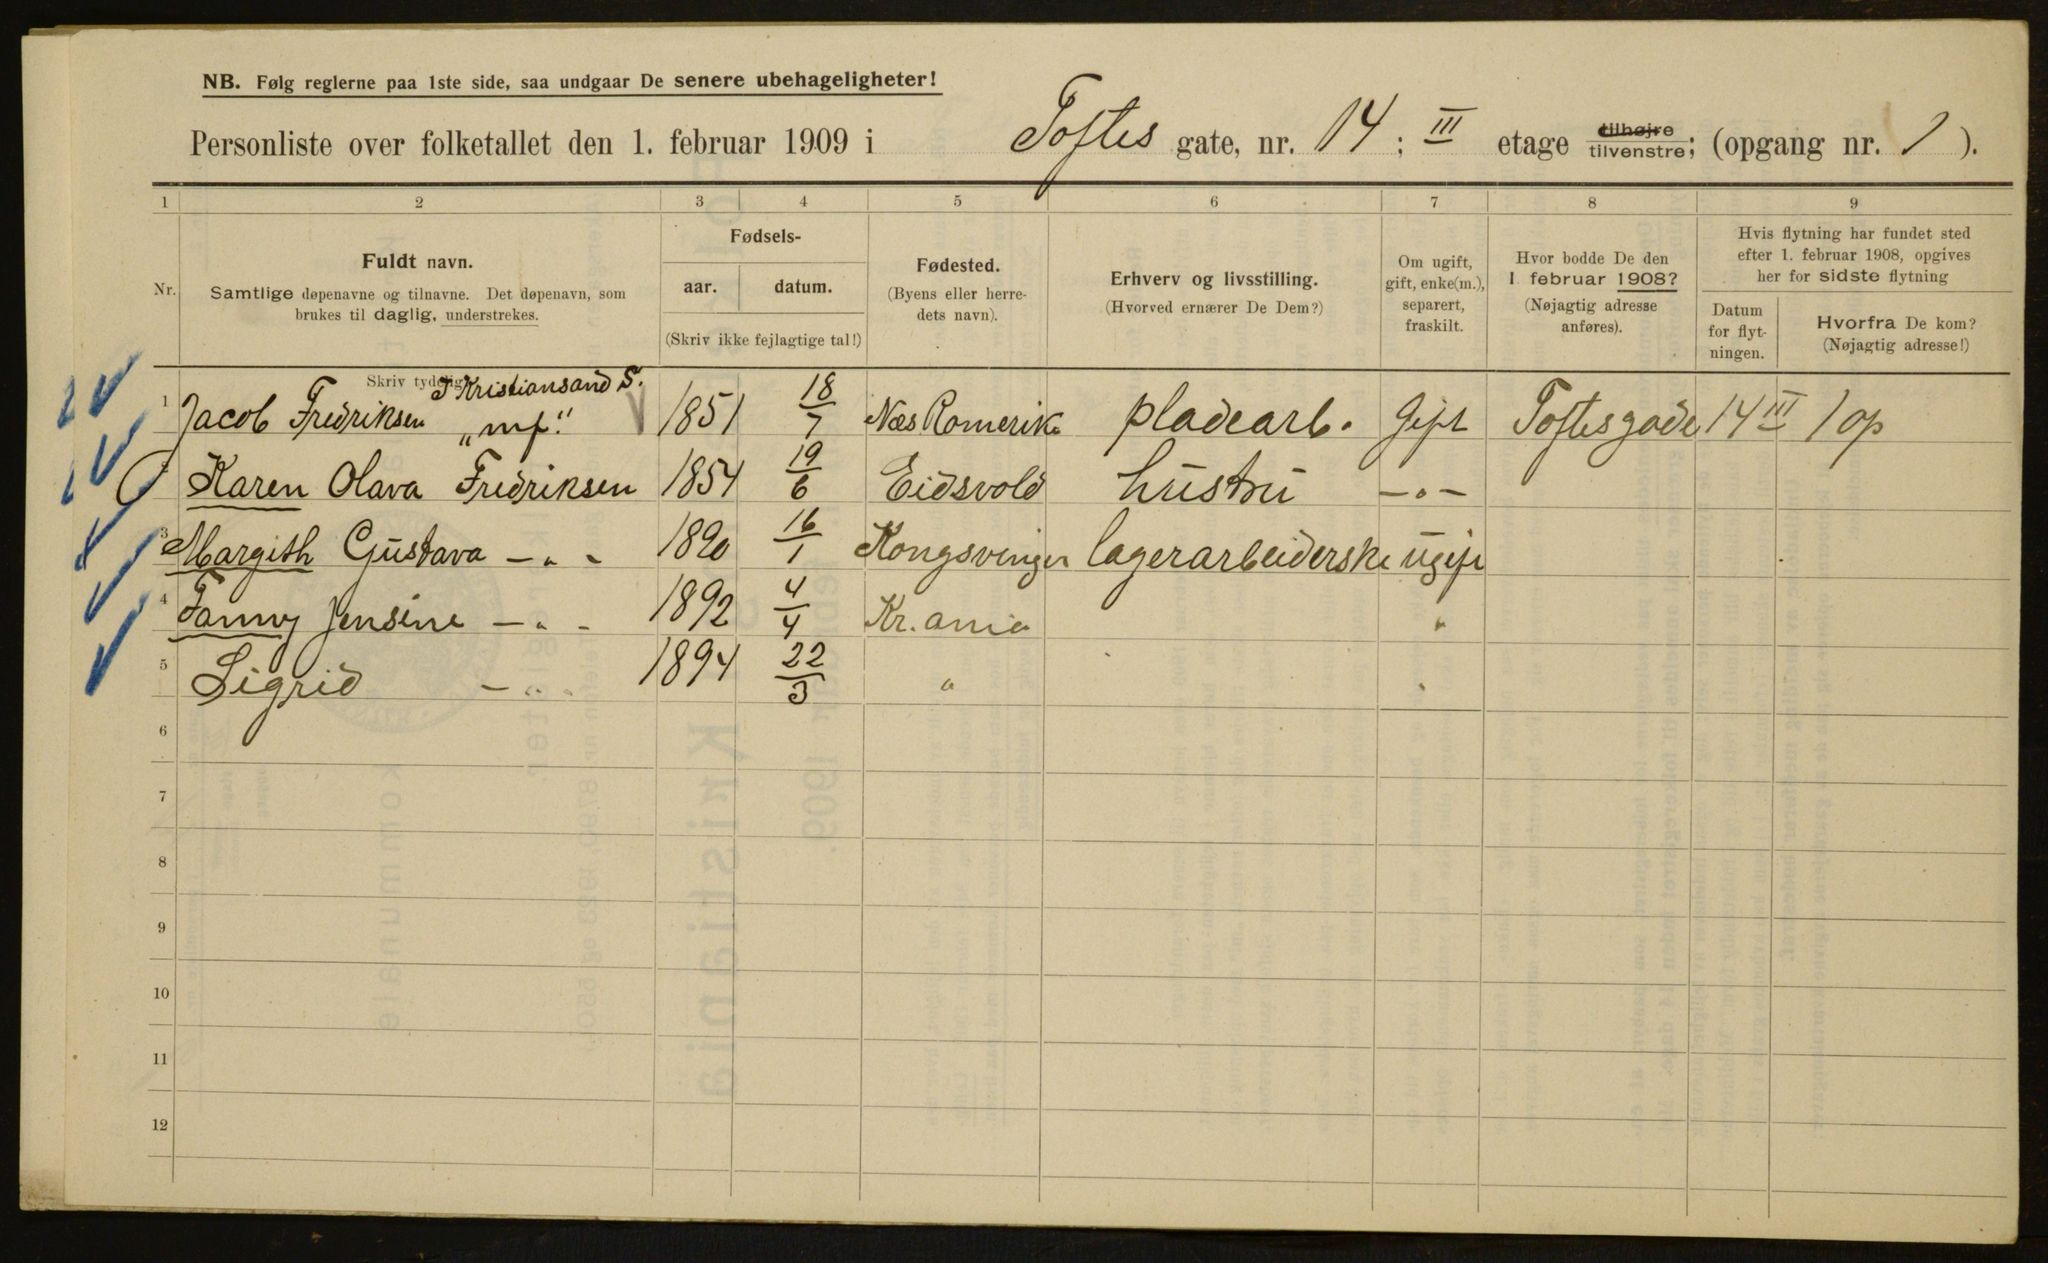 NB. Følg reglerne paa 1ste side, saa undgaar De senere ubehageligheter!
Personliste over folketallet den 1. februar 1909 i Toftes gate, nr. 14; III etage tilhøjre tilvenstre; (opgang nr. 1).
1 2 3 4 5 6 7 8 9
Nr.
Fuldt navn.
Samtlige døpenavne og tilnavne. Det døpenavn, som
brukes til daglig, understrekes.
Skriv tydelig
Fødsels-
aar. datum.
(Skriv ikke fejlagtige tal!)
Fødested.
(Byens eller herre-
dets navn).
Erhverv og livsstilling.
(Hvorved ernærer De Dem?)
Om ugift,
gift, enke(m.),
separert,
fraskilt.
Hvor bodde De den
1 februar 1908?
(Nøjagtig adresse
anføres).
Hvis flytning har fundet sted
efter 1. februar 1908, opgives
her for sidste flytning
Datum
for flyt-
ningen.
Hvorfra De kom?
(Nøjagtig adresse!)
I Kristiansand S.
1 Jacob Fredriksen "mf." 1851 18/7 Næs Romerike pladearb. Gift Toftesgade 14 III 1 op
Karen Olava Fredriksen 1854 19/6 Eidsvold hustru -"-
3 Margith Gustava - " - 1890 16/1 Kongsvinger lagerarbeiderske ugift
4 Fanny Jensine - " - 1892 4/4 Kr.ania "
5 Sigrid - " - 1894 22/3 " "
6
7
8
9
10
11
12